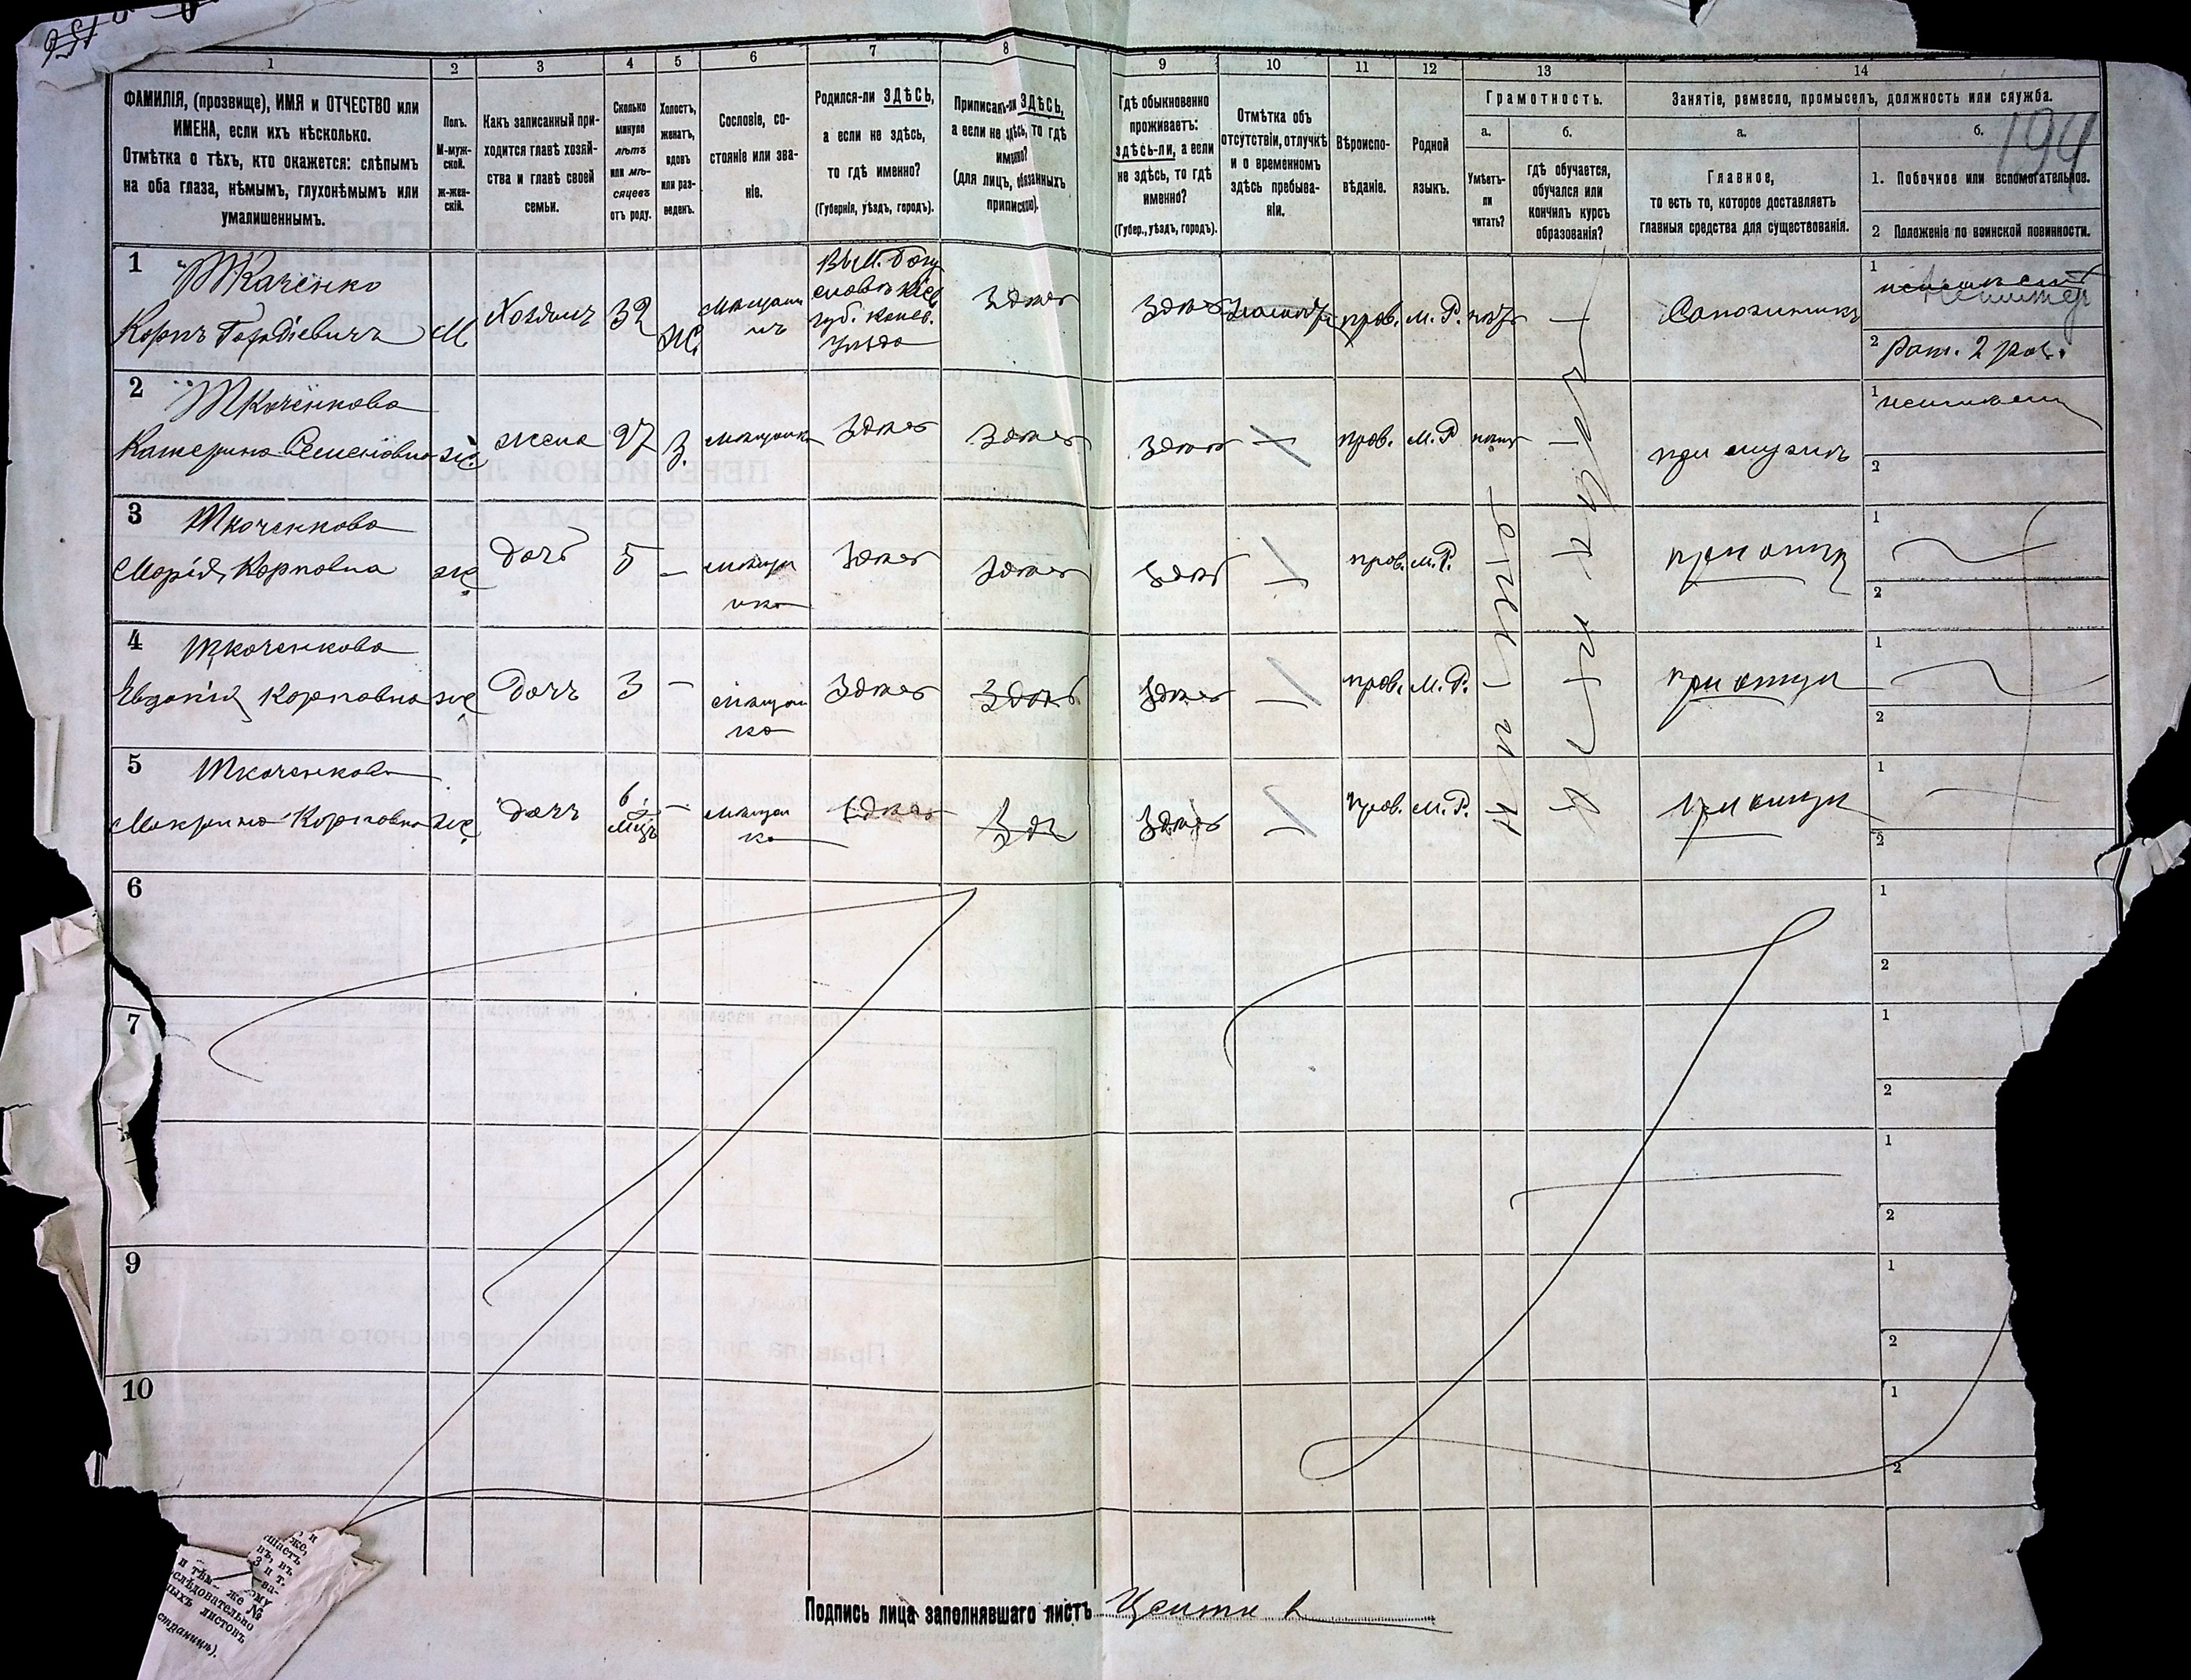 194
1
2
3
4
5
6
7
8
9
10
11
12
13
14
ФАМИЛІЯ, (прозвище), ИМЯ и ОТЧЕСТВО или
ИМЕНА, если ихъ нѣсколько.
Отмѣтка о тѣхъ, кто окажется: слѣпымъ
на оба глаза, нѣмымъ, глухонѣмымъ или
умалишеннымъ.
Полъ.
М-муж-
ской.
ж-жен-
скій.
Какъ записанный при-
ходится главѣ хозяй-
ства и главѣ своей
семьи.
Сколько
минуло
лѣтъ
или мѣ-
сяцевъ
отъ роду.
Холостъ,
женатъ,
вдовъ
или раз-
веденъ.
Сословіе, со-
стояніе или зва-
ніе.
Родился-ли ЗДѢСЬ,
а если не здѣсь,
то гдѣ именно?
(Губернія, уѣздъ, городъ).
Приписанъ-ли ЗДѢСЬ,
а если не здѣсь, то гдѣ
именно?
(для лицъ, обязанныхъ
припискою).
Гдѣ обыкновенно
проживаетъ:
здѣсь-ли, а если
не здѣсь, то гдѣ
именно?
(Губер., уѣздъ, городъ).
Отмѣтка объ
отсутствіи, отлучкѣ
и о временномъ
здѣсь пребыва-
ніи.
Вѣроиспо-
вѣданіе.
Родной
языкъ.
Грамотность.
а.
б.
Умѣетъ-
ли
читать?
гдѣ обучается,
обучался или
кончилъ курсъ
образованія?
Занятіе, ремесло, промыселъ, должность или служба.
а.
б.
Главное,
то есть то, которое доставляетъ
главныя средства для существованія.
1. Побочное или вспомогательное.
2 Положеніе по воинской повинности.
1
Ткаченко
Корпъ Гордіевичъ
М
Хозяинъ
32
Ж.
Мѣщани
нъ
Въ М. Богу
славѣ Кіев.
губ. Канев.
уѣзда
Здѣсь
Здѣсь
прав.
М. Р.
нѣтъ
—
Сапожникъ
1
2 Рат. 2 раз.
2
Ткаченкова
Катерина Семеновна
ж.
жена
27
З.
мѣщанка
Здѣсь
Здѣсь
Здѣсь
—
прав.
М. Р
нѣтъ
при мужѣ
1
2
3
Ткаченкова
Марія Карповна
ж.
дочь
5
—
мѣщан
ка
Здѣсь
Здѣсь
Здѣсь
—
прав.
М. Р.
при отцѣ
1
2
4
Ткаченкова
Евдокія Карповна
ж.
дочь
3
—
мѣщан
ка
Здѣсь
Здѣсь
Здѣсь
—
прав.
М. Р.
при отцѣ
1
2
5
Ткаченкова
Макрина Карповна
ж.
дочь
6
мѣц.
—
мѣщан
ка
Здѣсь
Здѣсь
—
прав.
М. Р.
при отцѣ
1
2
6
1
2
7
1
2
1
2
9
1
2
10
1
2
Подпись лица заполнявшаго листъ
же,
шастъ
въ, въ
3 и т.
и тѣм- же №
слѣдовательно
ныхъ листовъ
страницѣ).